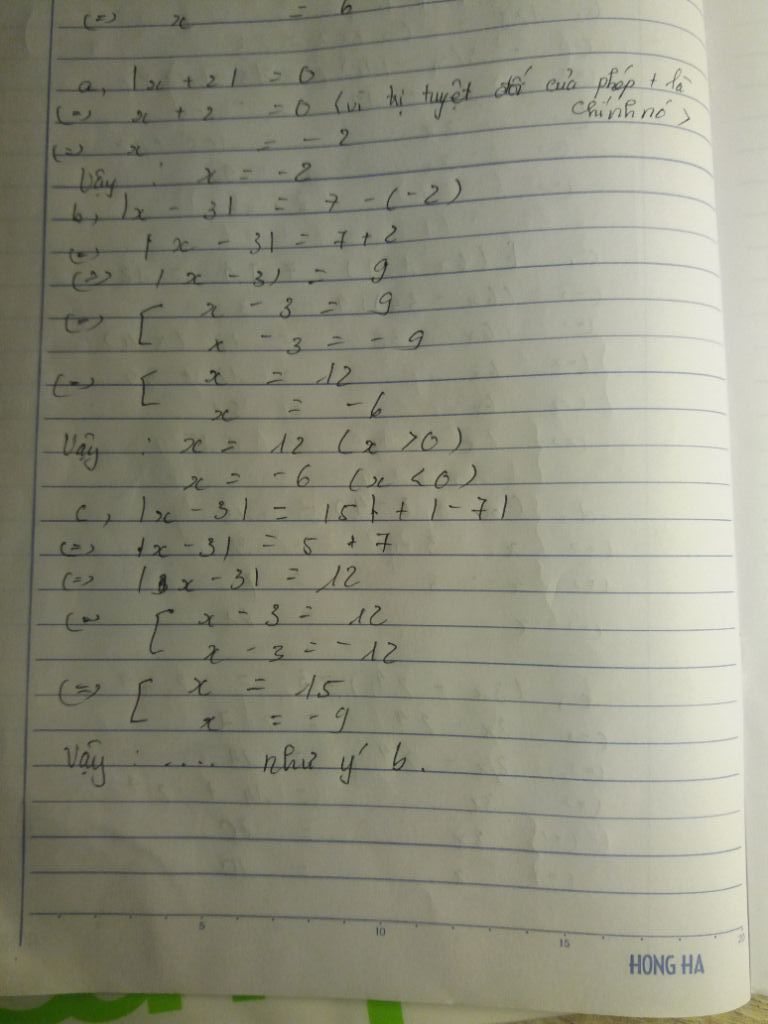 (=) x = 6
a, |x + 2| = 0
(=) x + 2 = 0 (vì trị tuyệt đối của phép + là
chính nó)
(=) x = - 2
Vậy : x = -2
b, |x - 3| = 7 - (-2)
(=) |x - 3| = 7 + 2
(=) |x - 3| = 9
(=) [ x - 3 = 9
x - 3 = - 9
(=) [ x = 12
x = -6
Vậy : x = 12 (x > 0)
x = -6 (x < 0)
c, |x - 3| = |5| + |-7|
(=) |x - 3| = 5 + 7
(=) |x - 3| = 12
(=) [ x - 3 = 12
x - 3 = - 12
(=) [ x = 15
x = - 9
Vậy : .... như ý b.
5 10 15 20
HONG HA